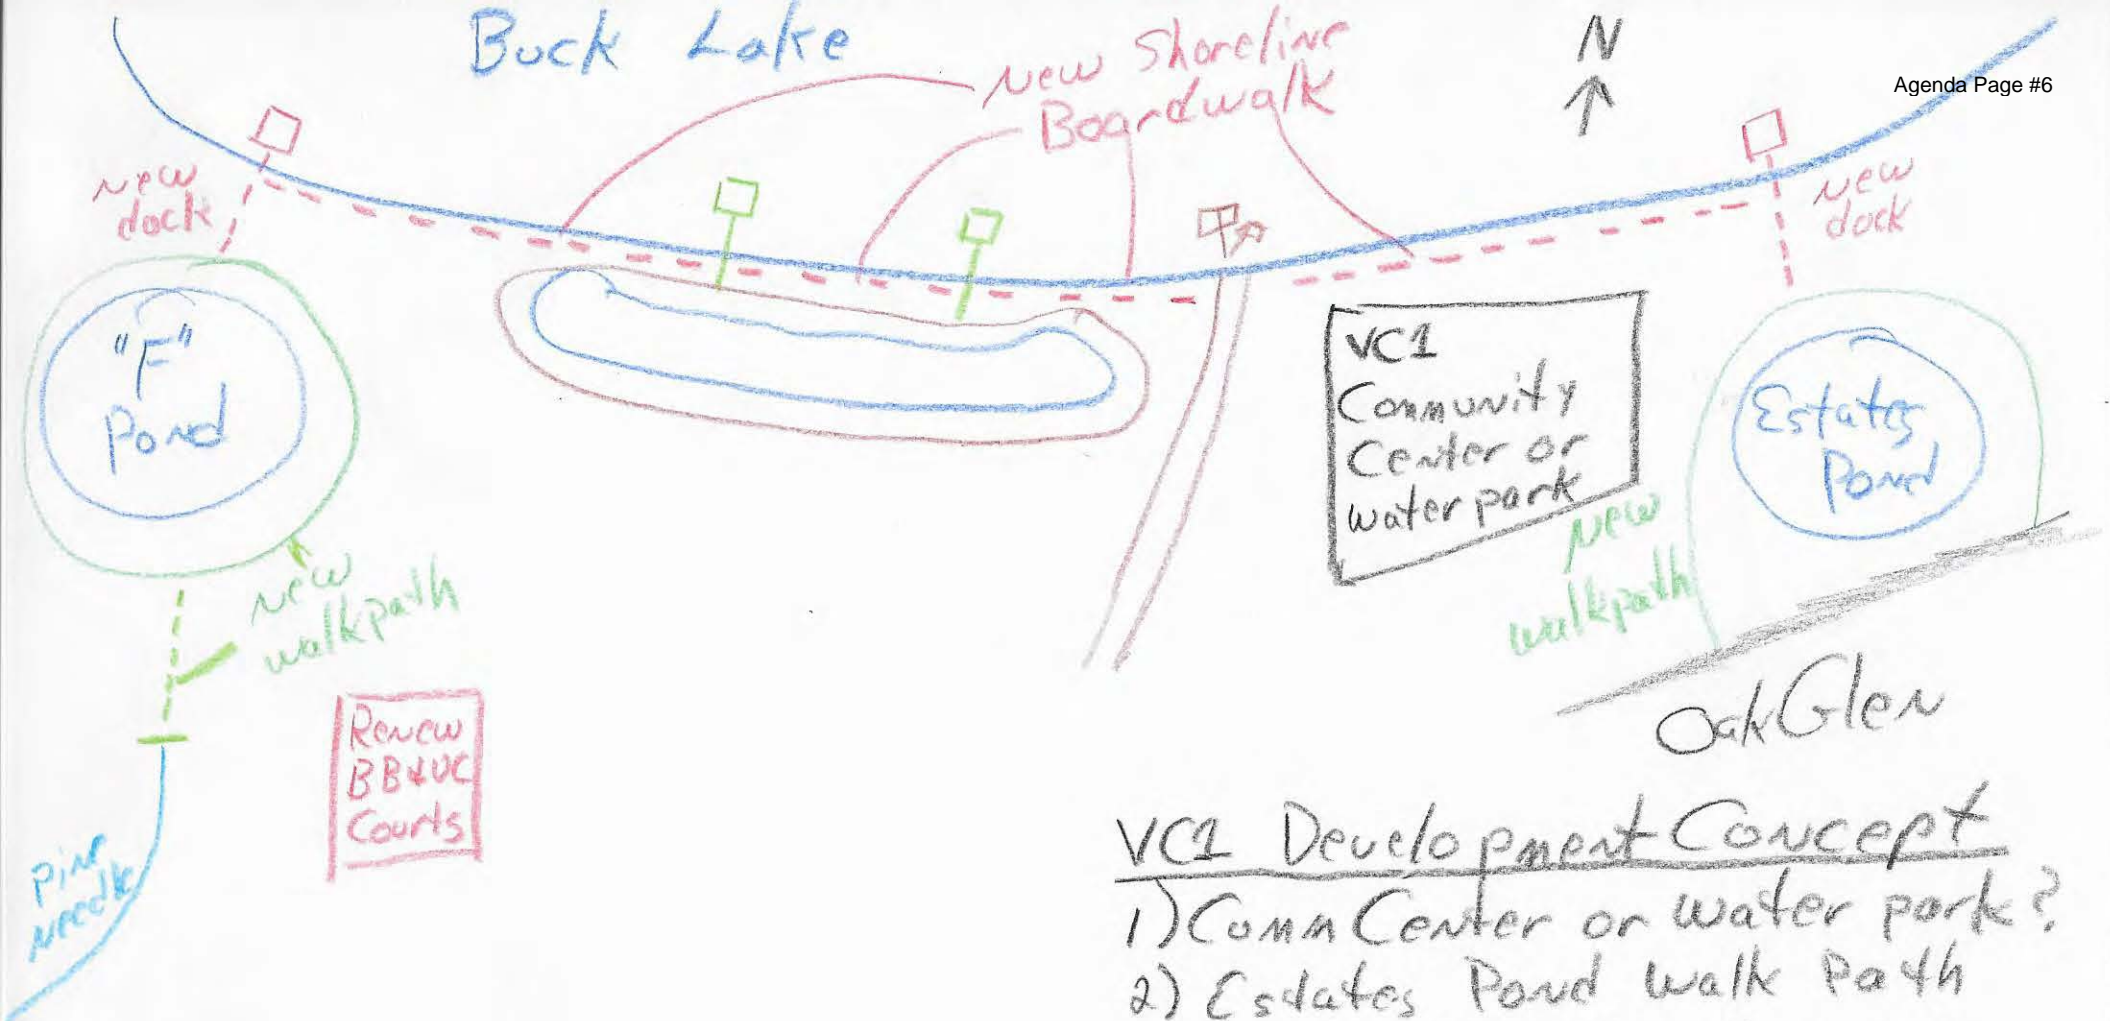 Buck Lake
New Shoreline
Boardwalk
N
Agenda Page #6
New
dock
New
dock
"F"
Pond
VC1
Community
Center or
water park
Estates
Pond
New
walkpath
New
walkpath
Renew
BB&VC
Courts
Oak Glen
Pine
Needle
VC1 Development Concept
1) Comm Center or water park?
2) Estates Pond Walk Path